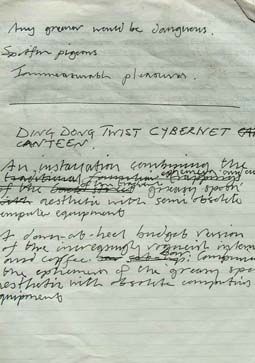 Any greener would be dangerous.
Spotfin pigeons
Immeasurable pleasures.
DING DONG TWIST CYBERNET
CANTEEN.
An installation combining the
traditional ephemera and
of the greasy spoon
aesthetic with semi obsolete
computer equipment
A down-at-heel budget version
of the increasingly vogueish intern
and coffee bar
the ephemera of the greasy spo
aesthetic with obsolete computing
equipment